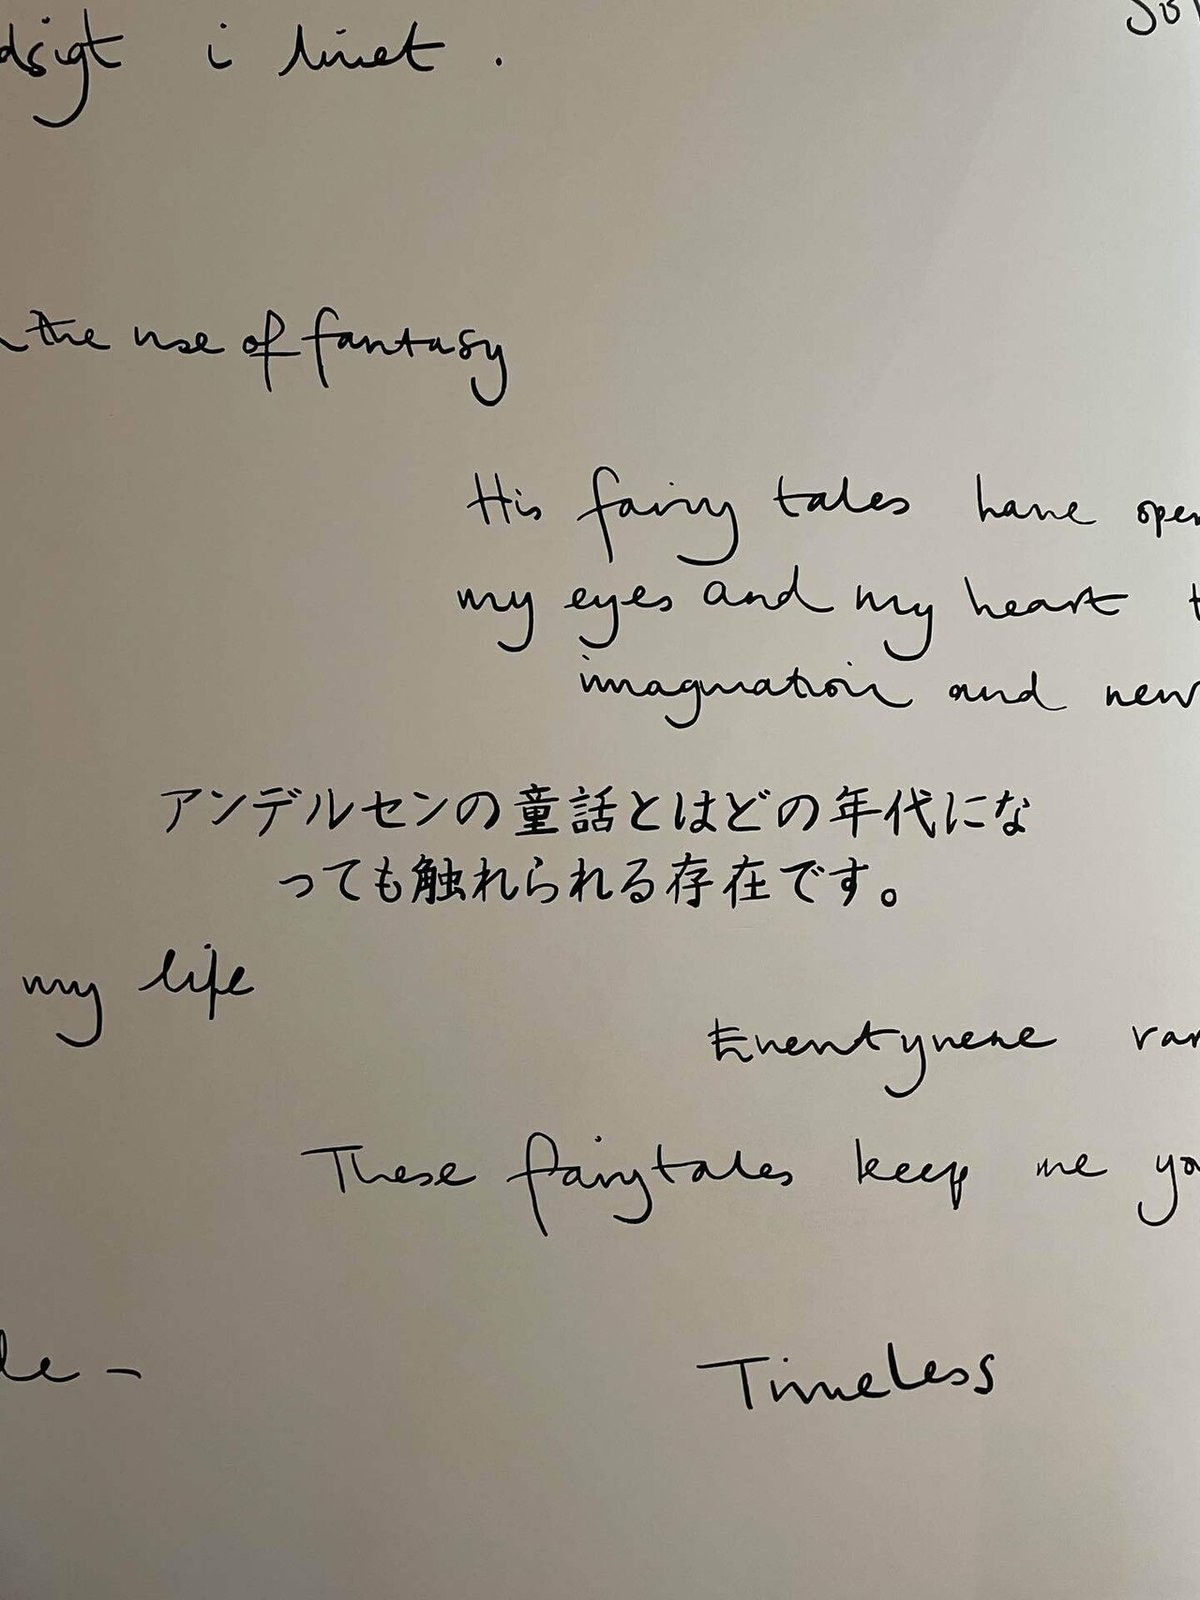 i livet.
the use of fantasy
His fairy tales have
my eyes and my heart
imagination and new
アンデルセンの童話とはどの年代にな
っても触れられる存在です。
my life
Eventyrene
These fairytales keep me
Timeless